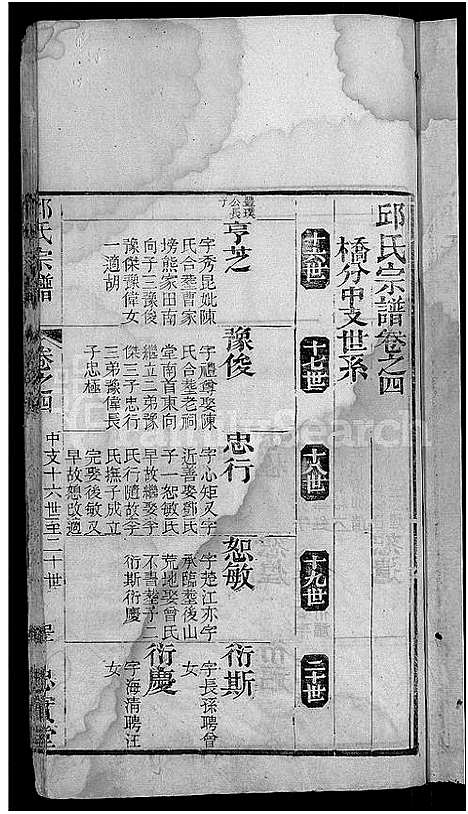 邱氏宗譜卷之四
橋分中支世系
十六世
十七世
十八世
十九世
二十世
公長子
亨芝
字秀昆妣陳
氏合塟曹家
塝熊家田南
向子三豫俊
豫傑豫偉女
一適胡
豫俊
字禮尊娶陳
氏合塟老祠
堂南首東向
繼立二弟豫
傑三子忠行
三弟豫偉長
子忠極
忠行
字心矩又字
近善娶鄧氏
子一恕敏氏
早故繼娶李
氏行隨故李
氏撫子成立
完娶後敏又
早故恕改適
恕敏
字楚江亦字
承臨塟後山
荒地娶曾氏
不書塟子二
衍斯衍慶
衍斯
字長孫聘曾
女
衍慶
字海清聘汪
女
邱氏宗譜
卷之四
中支十六世至二十世
FamilySearch